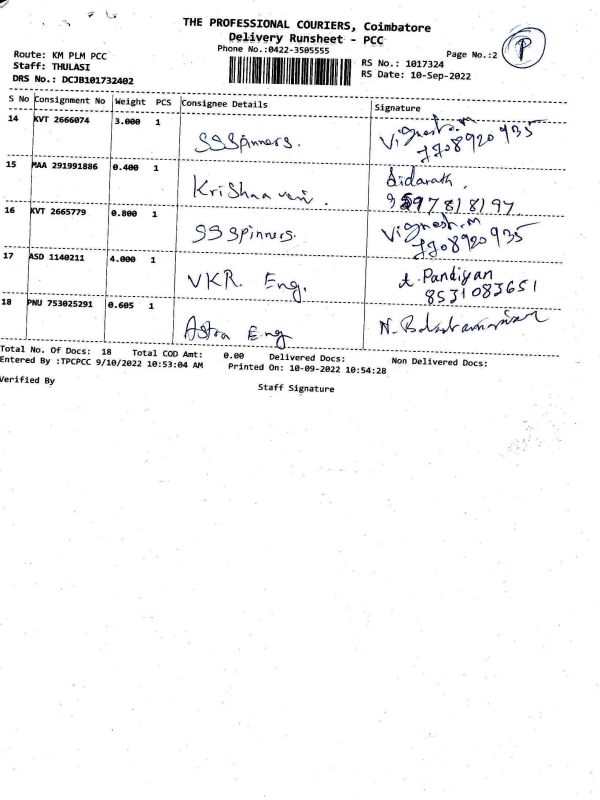 THE PROFESSIONAL COURIERS, Coimbatore
Delivery Runsheet - PCC
Phone No.:0422-3505555
Page No.:2
P
Route: KM PLM PCC
Staff: THULASI
DRS No.: DCJB101732402
RS No.: 1017324
RS Date: 10-Sep-2022
S No Consignment No Weight PCS Consignee Details Signature
14 KVT 2666074 3.000 1 SSSpinners. Vignesh.m
7708920935
15 MAA 291991886 0.400 1 Krishnaveni. Sidarath,
9597818197
16 KVT 2665779 0.800 1 SS Spinners. Vignesh.m
7708920935
17 ASD 1140211 4.000 1 VKR. Eng. A. Pandiyan
8531083651
18 PNU 753025291 0.605 1 Astra Eng N.
Total No. Of Docs: 18 Total COD Amt: 0.00 Delivered Docs: Non Delivered Docs:
Entered By :TPCPCC 9/10/2022 10:53:04 AM Printed On: 10-09-2022 10:54:28
Verified By Staff Signature